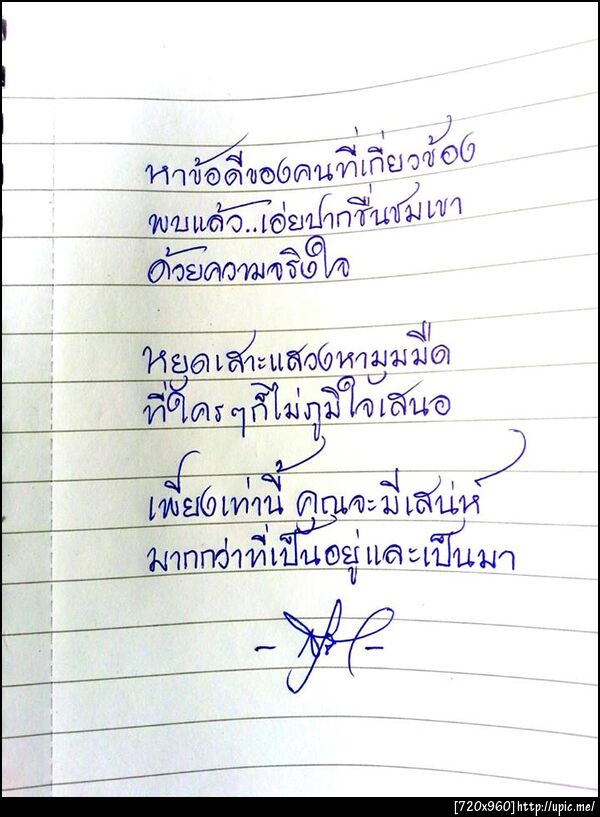 หาข้อดีของคนที่เกี่ยวข้อง
พบแล้ว..เอ่ยปากชื่นชมเขา
ด้วยความจริงใจ
หยุดเสาะแสวงหามุมมืด
ที่ใครๆก็ไม่ภูมิใจเสนอ
เพียงเท่านี้ คุณจะมีเสน่ห์
มากกว่าที่เป็นอยู่และเป็นมา
[720x960]http://upic.me/